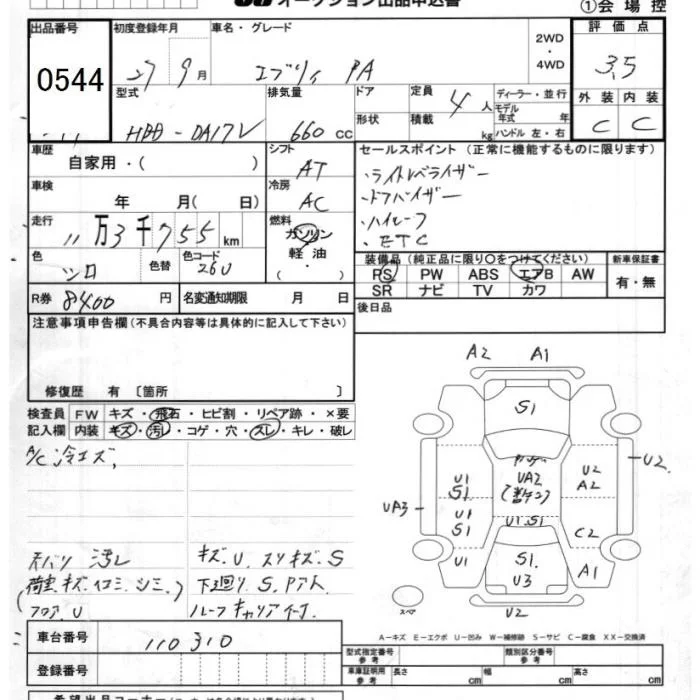 オークション出品申込書
①会場控
出品番号 初度登録年月 車名・グレード 2WD ・ 4WD 評価点
0544 27 9月 エブリィ PA 3.5
型式 排気量 ドア 定員 4人 ディーラー・並行 外装 内装
形状 積載 kg モデル年式 年 ハンドル 左・右 C C
HBD-DA17V 660cc
車歴 シフト セールスポイント (正常に機能するものに限ります)
自家用・( ) AT ・ライトレベライザー
車検 冷房 ・ドアバイザー
年 月( 日) AC ・ハイルーフ
走行 燃料 ・ETC
11万3千755km ガソリン
軽油
・( )
色 色替 色コード 装備品(純正品に限り○をつけてください) 新車保証書
シロ 26U PS PW ABS エアB AW 有・無
SR ナビ TV カワ
R券 8400円 名変通知期限 月 日 後日品
注意事項申告欄(不具合内容等は具体的に記入して下さい)
修復歴 有〔箇所 〕
検査員 FW キズ・飛石・ヒビ割・リペア跡・×要
記入欄 内装 キズ・汚レ・コゲ・穴・スレ・キレ・破レ
A/C 冷エズ、
天バリ 汚レ キズ、U、スリキズ、S
(荷室キズ、イロミ、シミ、) 下廻り S、Pアト
フロア、U ルーフキャリア
A2 A1
S1
UA2
U1 S1
U2 A2
U2
UA3
U1 S1
U1 S1
C2
U1
S1.
U3
A1
U2
スペア
A-キズ E-エクボ U-凹み W-補修跡 S-サビ C-腐食 XX-交換済
車台番号 110310
登録番号
型式指定番号 参考 類別区分番号 参考
車庫証明用 参考 長さ cm 幅 cm 高さ cm